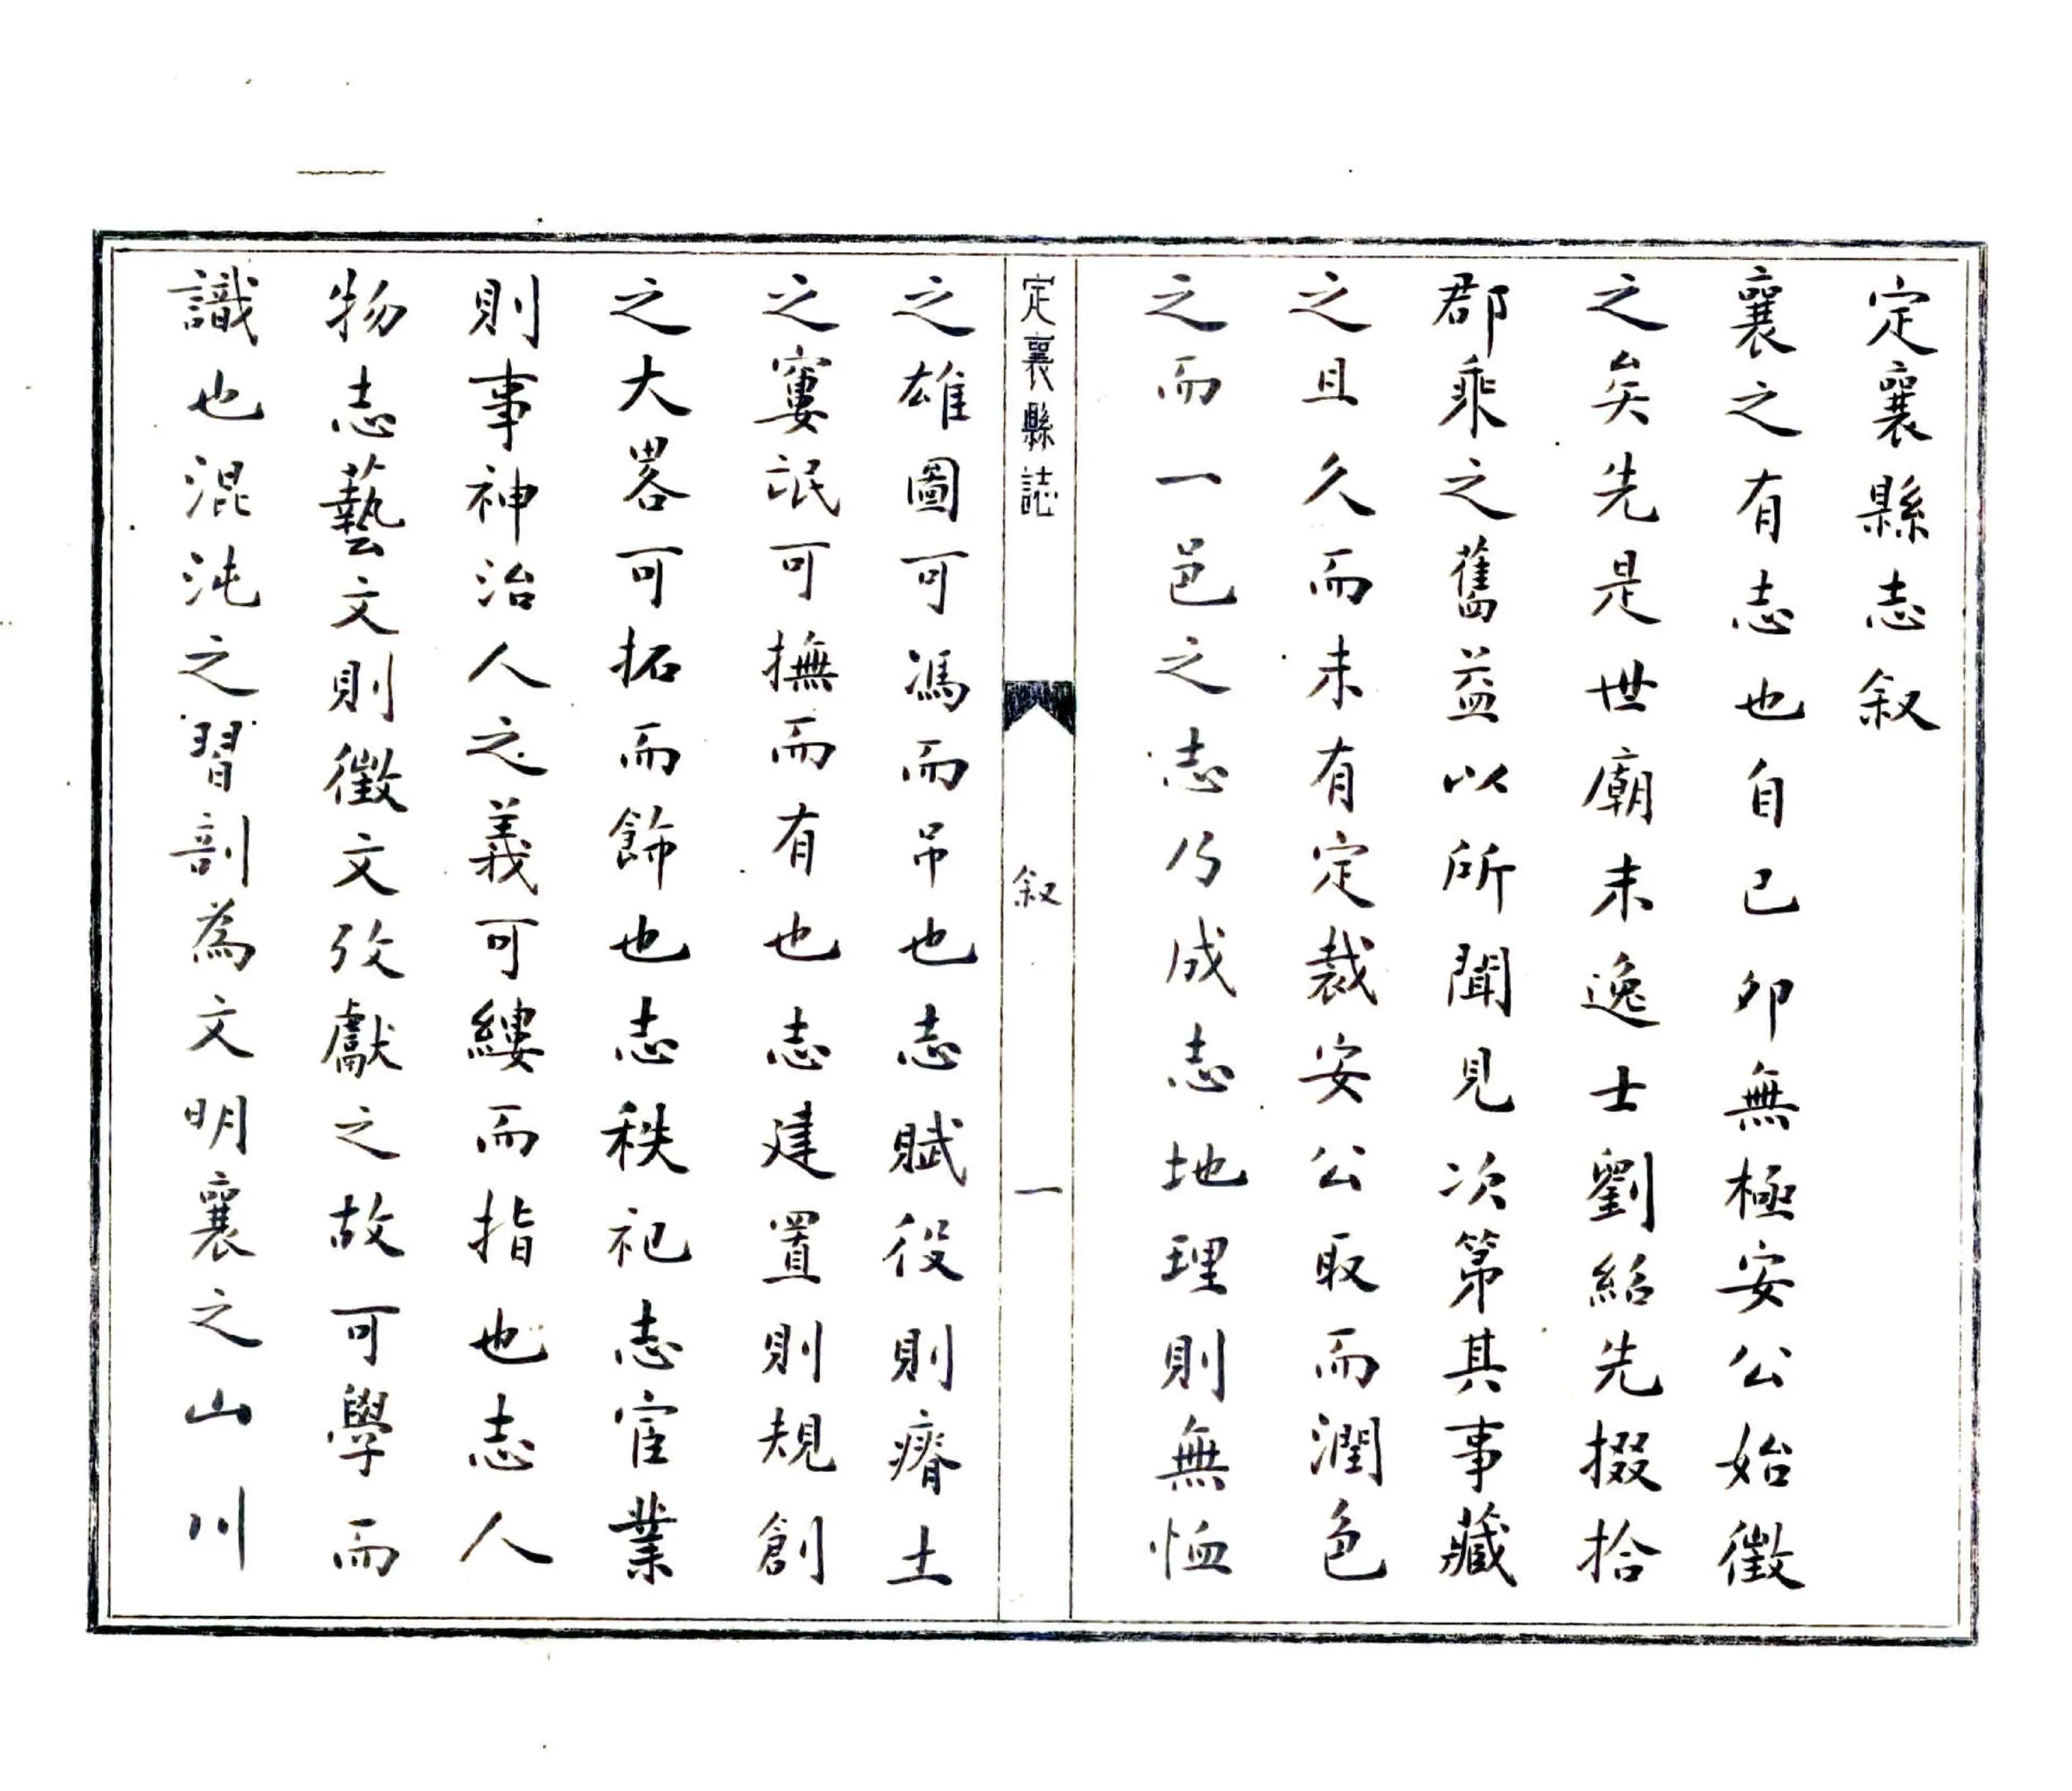 定襄縣志叙
襄之有志也自己卯無極安公始徵
之矣先是世廟末逸士劉紹先掇拾
郡乘之舊益以所聞見次第其事藏
之且久而未有定裁安公取而潤色
之而一邑之志乃成志地理則無恤
定襄縣誌 叙 一
之雄圖可馮而吊也志賦役則瘠土
之窶氓可撫而有也志建置則規創
之大畧可拓而飾也志秩祀志宦業
則事神治人之義可縷而指也志人
物志藝文則徵文攷獻之故可學而
識也混沌之習剖為文明襄之山川